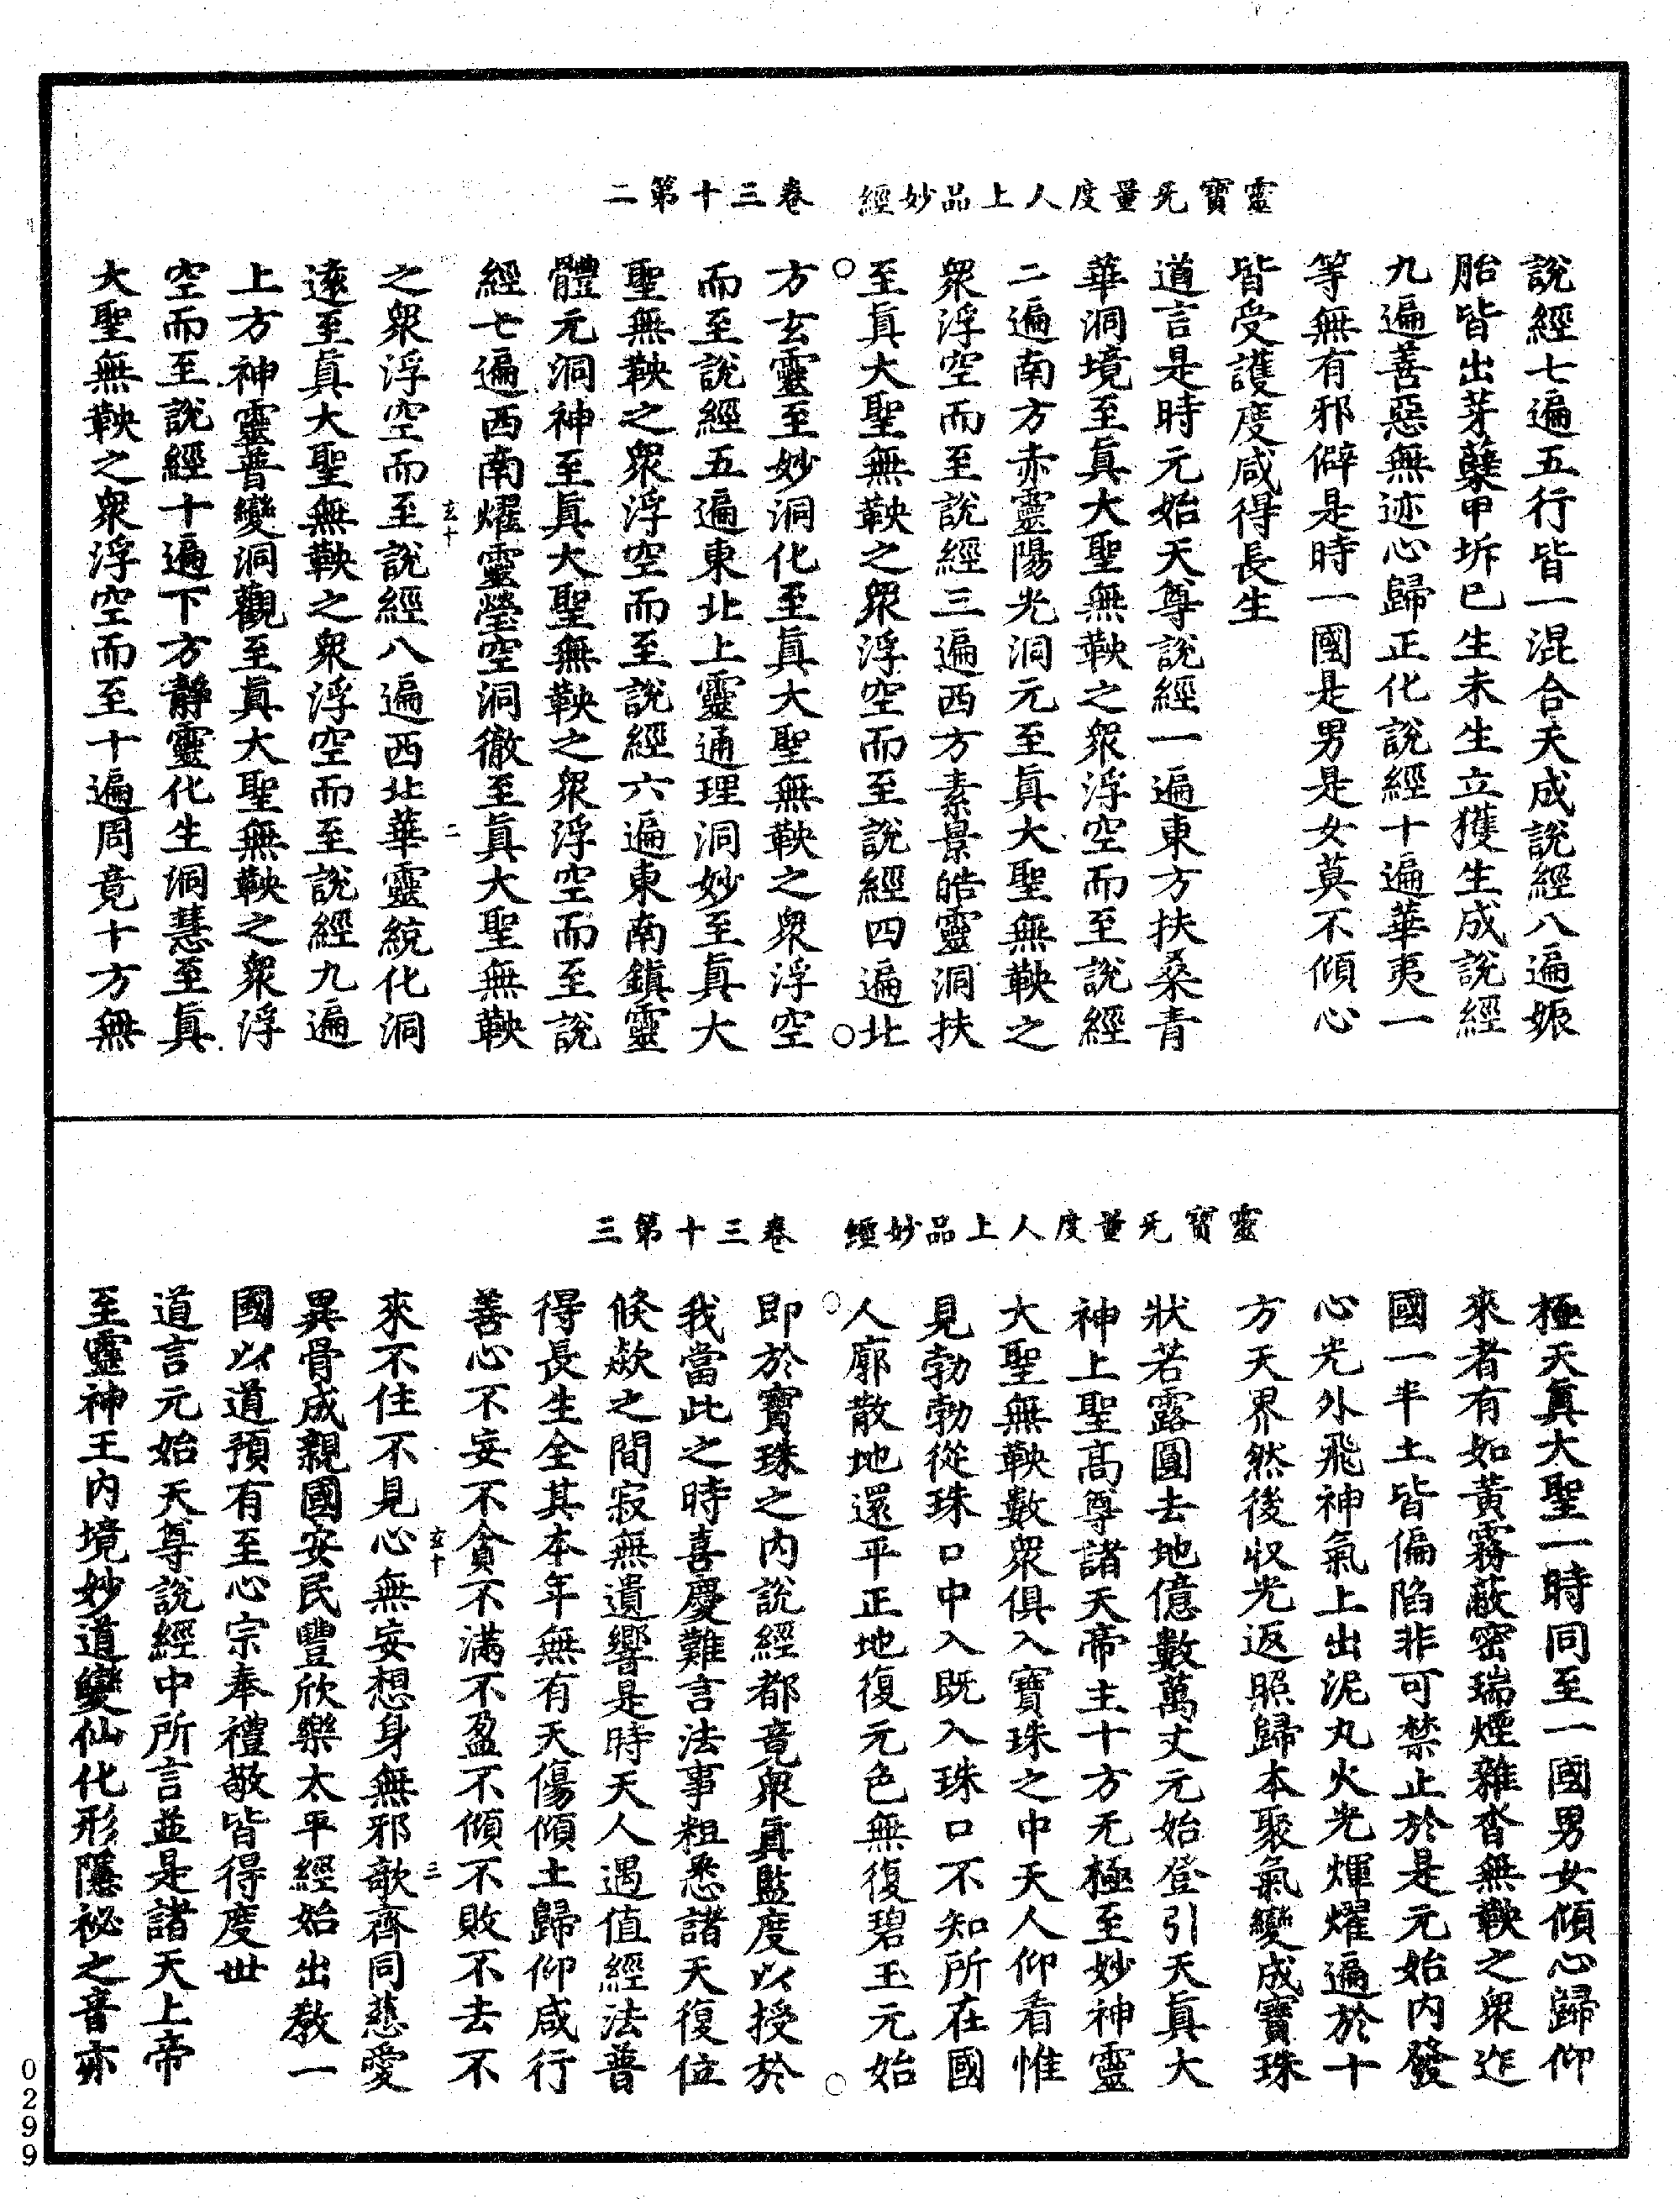 靈寶无量度人上品妙經　卷三十第二
說經七遍五行皆一混合天成說經八遍娠
胎皆出芽蘖甲坼已生未生立獲生成說經
九遍善惡無迹心歸正化說經十遍華夷一
等無有邪僻是時一國是男是女莫不傾心
皆受護度咸得長生
道言是時元始天尊說經一遍東方扶桑青
華洞境至眞大聖無鞅之衆浮空而至說經
二遍南方赤靈陽光洞元至眞大聖無鞅之
衆浮空而至說經三遍西方素景皓靈洞扶
至眞大聖無鞅之衆浮空而至說經四遍北
方玄靈至妙洞化至眞大聖無鞅之衆浮空
而至說經五遍東北上靈通理洞妙至眞大
聖無鞅之衆浮空而至說經六遍東南鎭靈
體元洞神至眞大聖無鞅之衆浮空而至說
經七遍西南燿靈瑩空洞徹至眞大聖無鞅
玄十　二
之衆浮空而至說經八遍西北華靈統化洞
遠至眞大聖無鞅之衆浮空而至說經九遍
上方神靈普變洞觀至眞大聖無鞅之衆浮
空而至說經十遍下方靜靈化生洞慧至眞
大聖無鞅之衆浮空而至十遍周竟十方無
靈寶无量度人上品妙經　卷三十第三
極天眞大聖一時同至一國男女傾心歸仰
來者有如黃霧蔽密瑞煙雜沓無鞅之衆迮
國一半土皆偏陷非可禁止於是元始內發
心光外飛神氣上出泥丸火光煇燿遍於十
方天界然後収光返照歸本聚氣變成寶珠
狀若露圓去地億數萬丈元始登引天眞大
神上聖高尊諸天帝主十方无極至妙神靈
大聖無鞅數衆俱入寶珠之中天人仰看惟
見勃勃從珠口中入既入珠口不知所在國
人廓散地還平正地復元色無復碧玉元始
即於寶珠之內說經都竟衆眞監度以授於
我當此之時喜慶難言法事粗悉諸天復位
倏歘之間寂無遺響是時天人遇值經法普
得長生全其本年無有夭傷傾土歸仰咸行
善心不妄不貪不滿不盈不傾不敗不去不
玄十　三
來不住不見心無妄想身無邪歆齊同慈愛
異骨成親國安民豐欣樂太平經始出敎一
國以道預有至心宗奉禮敬皆得度世
道言元始天尊說經中所言並是諸天上帝
至靈神王內境妙道變仙化形隱祕之音亦
0299